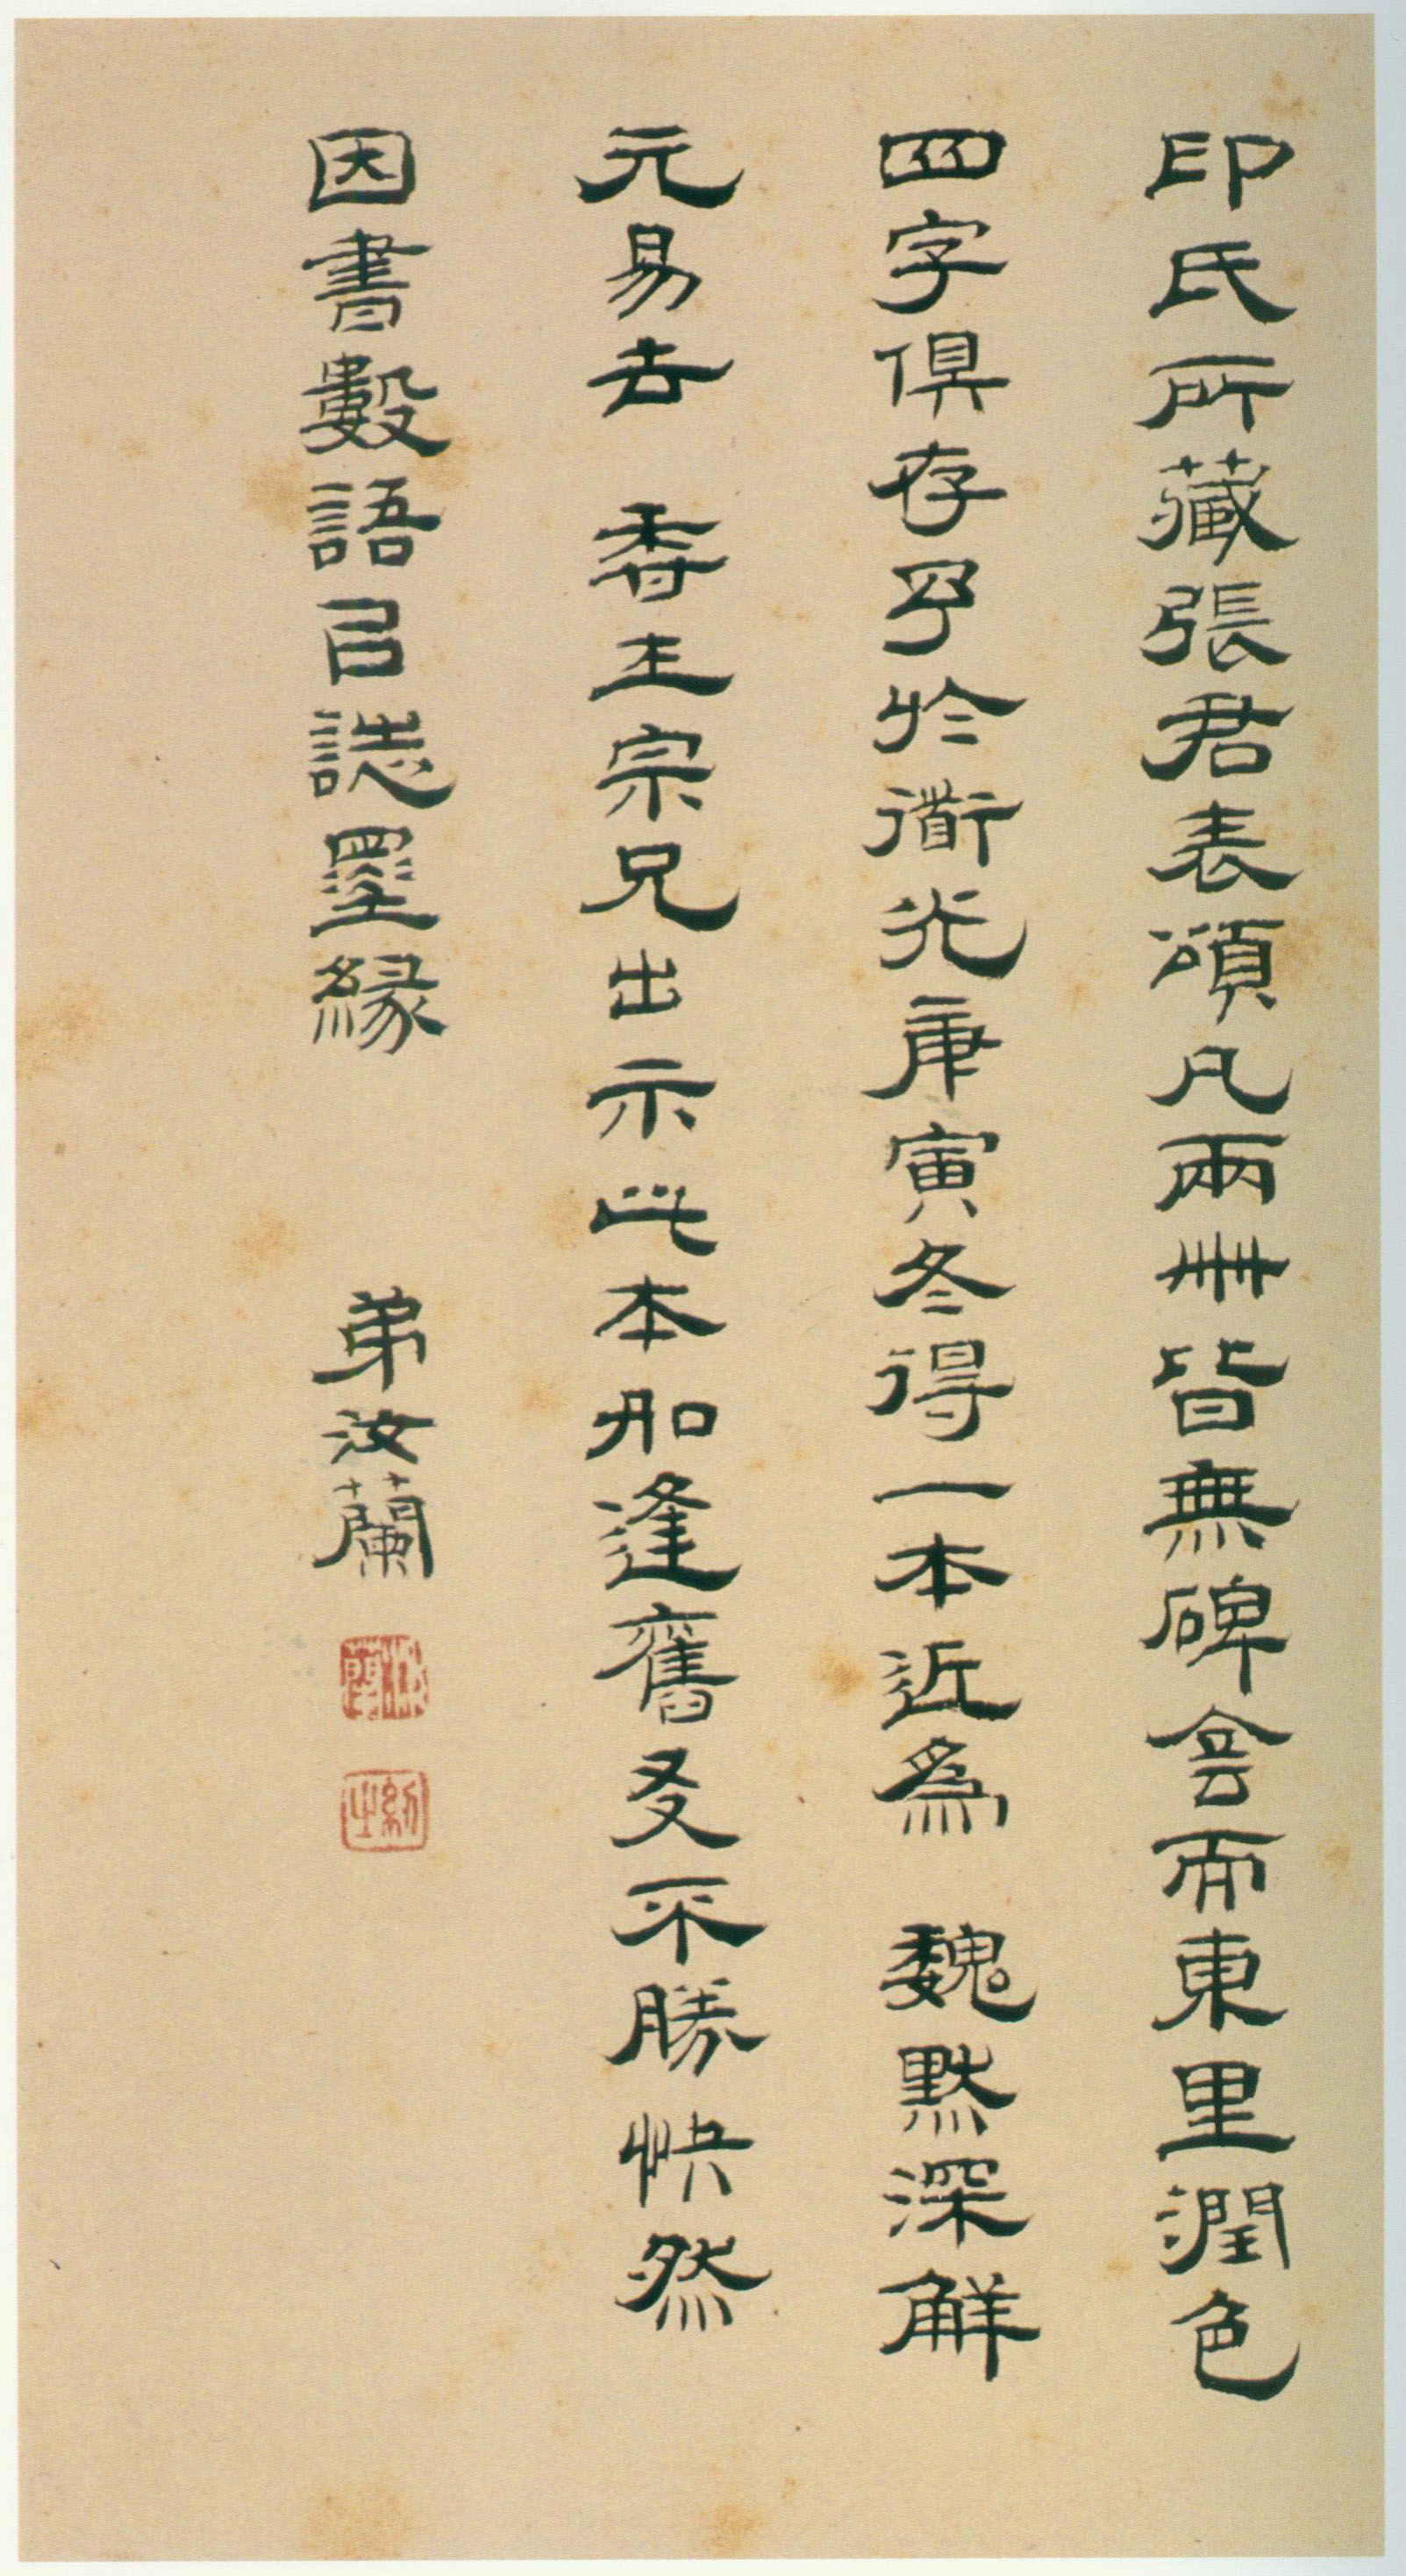 印氏所藏張君表頌凡兩冊皆無碑侌而東里潤色
四字俱存予於衜光庚寅冬得一本近為 魏默深解
元易去 香主宗兄出示此本如逢舊友不勝快然
因書數語㠯誌墨緣 弟汝蘭
汝蘭
紉之